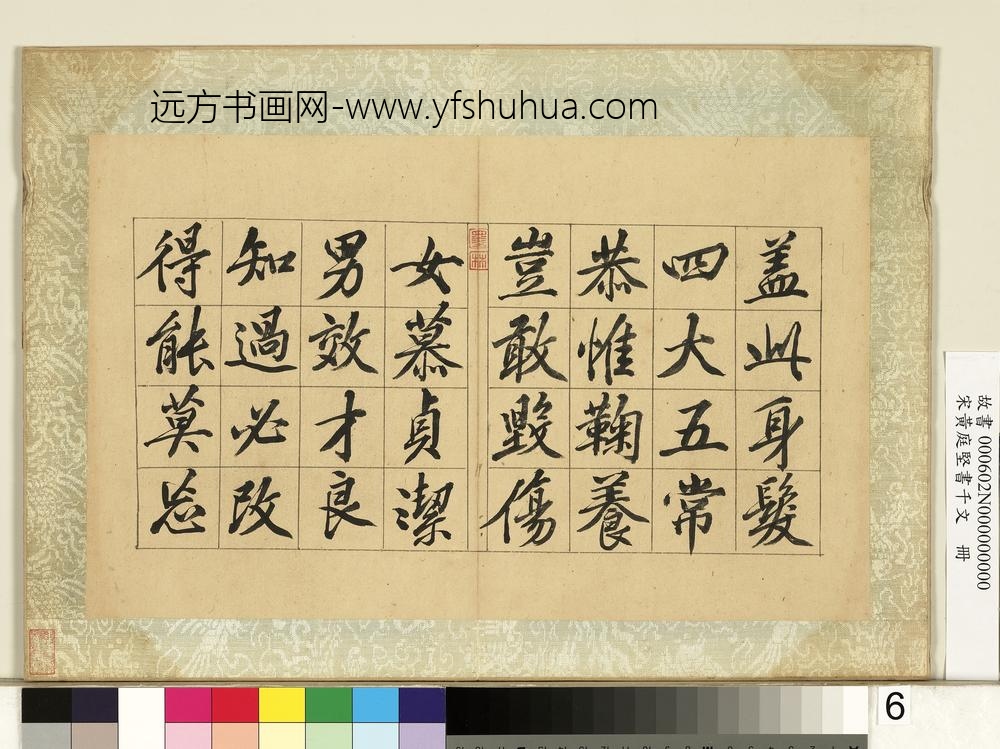 远方书画网-www.yfshuhua.com
盖此身髮
四大五常
恭惟鞠養
豈敢毀傷
女慕貞潔
男效才良
知過必改
得能莫忘
故書 000602N000000000
宋黃庭堅書千文 冊
6